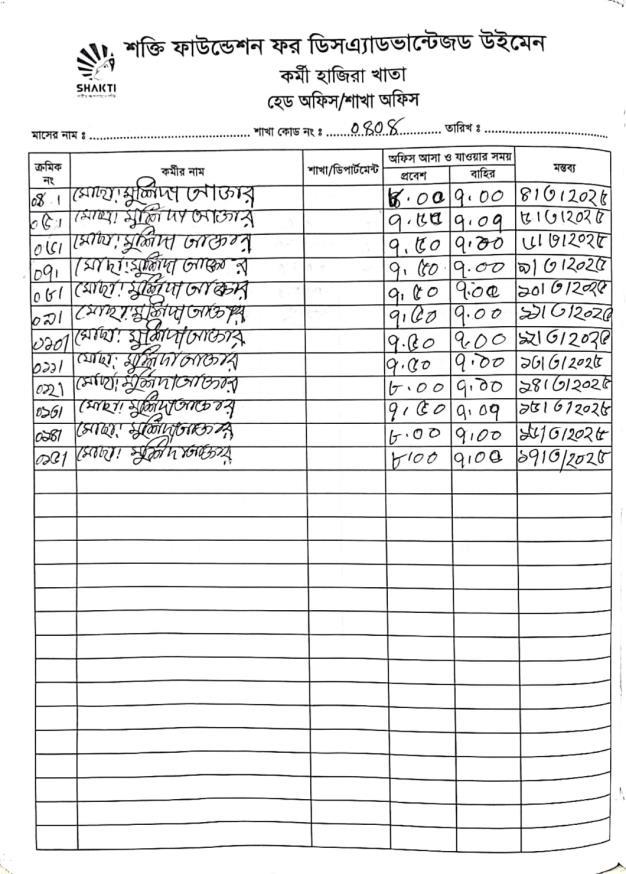 শক্তি ফাউন্ডেশন ফর ডিসএ্যাডভান্টেজড উইমেন
SHAKTI
কর্মী হাজিরা খাতা
হেড অফিস/শাখা অফিস
মাসের নাম ঃ শাখা কোড নং ঃ ০৪০৪ তারিখ ঃ
ক্রমিক নং কর্মীর নাম শাখা/ডিপার্টমেন্ট অফিস আসা ও যাওয়ার সময় মন্তব্য
প্রবেশ বাহির
০৪। মোছা: মুর্শিদা আক্তার ৮.০০ ৭.০০ ৪।৩।২০২৫
০৫। মোছা: মুর্শিদা আক্তার ৭.৫৫ ৭.০৭ ৫।৩।২০২৫
০৬। মোছা: মুর্শিদা আক্তার ৭.৫০ ৭.০০ ৬।৩।২০২৫
০৭। মোছা: মুর্শিদা আক্তার ৭.৫০ ৭.০০ ৯।৩।২০২৫
০৮। মোছা: মুর্শিদা আক্তার ৭.৫০ ৭.০০ ১০।৩।২০২৫
০৯। মোছা: মুর্শিদা আক্তার ৭.৫০ ৭.০০ ১১।৩।২০২৫
০১০। মোছা: মুর্শিদা আক্তার ৭.৫০ ৭.০০ ১২।৩।২০২৫
০১১। মোছা: মুর্শিদা আক্তার ৭.৫০ ৭.০০ ১৩।৩।২০২৫
০১২। মোছা: মুর্শিদা আক্তার ৮.০০ ৭.০০ ১৪।৩।২০২৫
০১৩। মোছা: মুর্শিদা আক্তার ৭.৫০ ৭.০৭ ১৫।৩।২০২৫
০১৪। মোছা: মুর্শিদা আক্তার ৮.০০ ৭.০০ ১৬।৩।২০২৫
০১৫। মোছা: মুর্শিদা আক্তার ৮.০০ ৭.০০ ১৭।৩।২০২৫